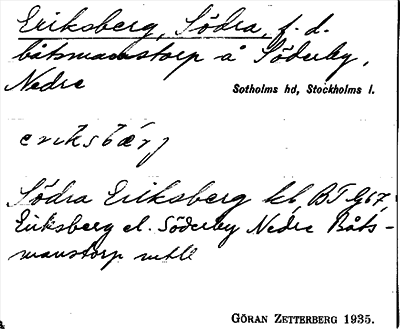 Eriksberg, Södra, f. d.
båtsmanstorp å Söderby,
Nedre
Sotholms hd, Stockholms l.
eriksbärj
Södra Eriksberg kl, BT G67,
Eriksberg el. Söderby Nedre Båts-
manstorp mtll
GÖRAN ZETTERBERG 1935.